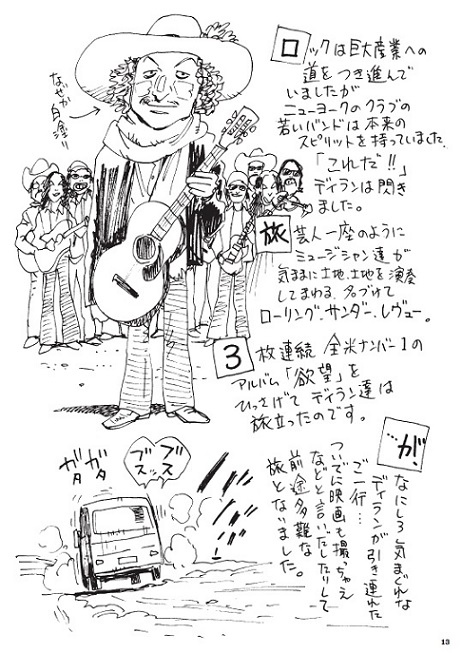 ロックは巨大産業への
道をつき進んで
いましたが
ニューヨークのクラブの
若いバンドは本来の
スピリットを持っていました。
「これだ!!」
ディランは閃き
ました。
なぜか
白塗り
旅芸人一座のように
ミュージシャン達が
気ままに土地、土地を演奏
してまわる。名づけて
ローリング、サンダー、レヴュー。
3枚連続 全米ナンバー1の
アルバム「欲望」を
ひっさげて ディラン達は
旅立ったのです。
…が!
なにしろ気まぐれな
ディランが引き連れた
ご一行…
ついでに映画も撮っちゃえ
などと言いだしたりして
前途多難な
旅となりました。
ガタ
ガタ
ブスッ
ブスッ
13